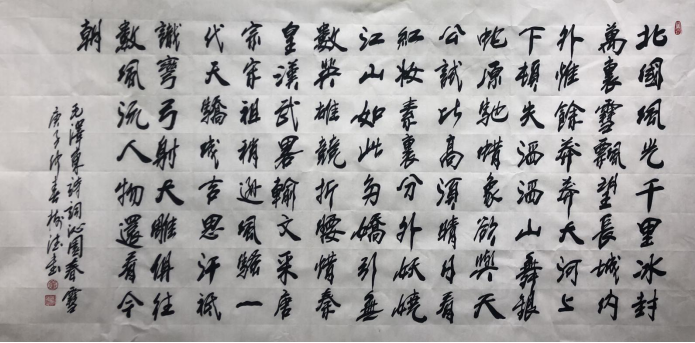 北國風光千里冰封
萬裏雪飄望長城内
外惟餘莽莽大河上
下頓失滔滔山舞銀
蛇原馳蜡象欲與天
公試比高須晴日看
紅妝素裹分外妖嬈
江山如此多嬌引無
數英雄競折腰惜秦
皇漢武畧輸文采唐
宗宋祖稍遜風騷一
代天驕成吉思汗祗
識彎弓射大雕俱往
數風流人物還看今
朝
毛澤東詩詞沁園春雪
庚子仲春